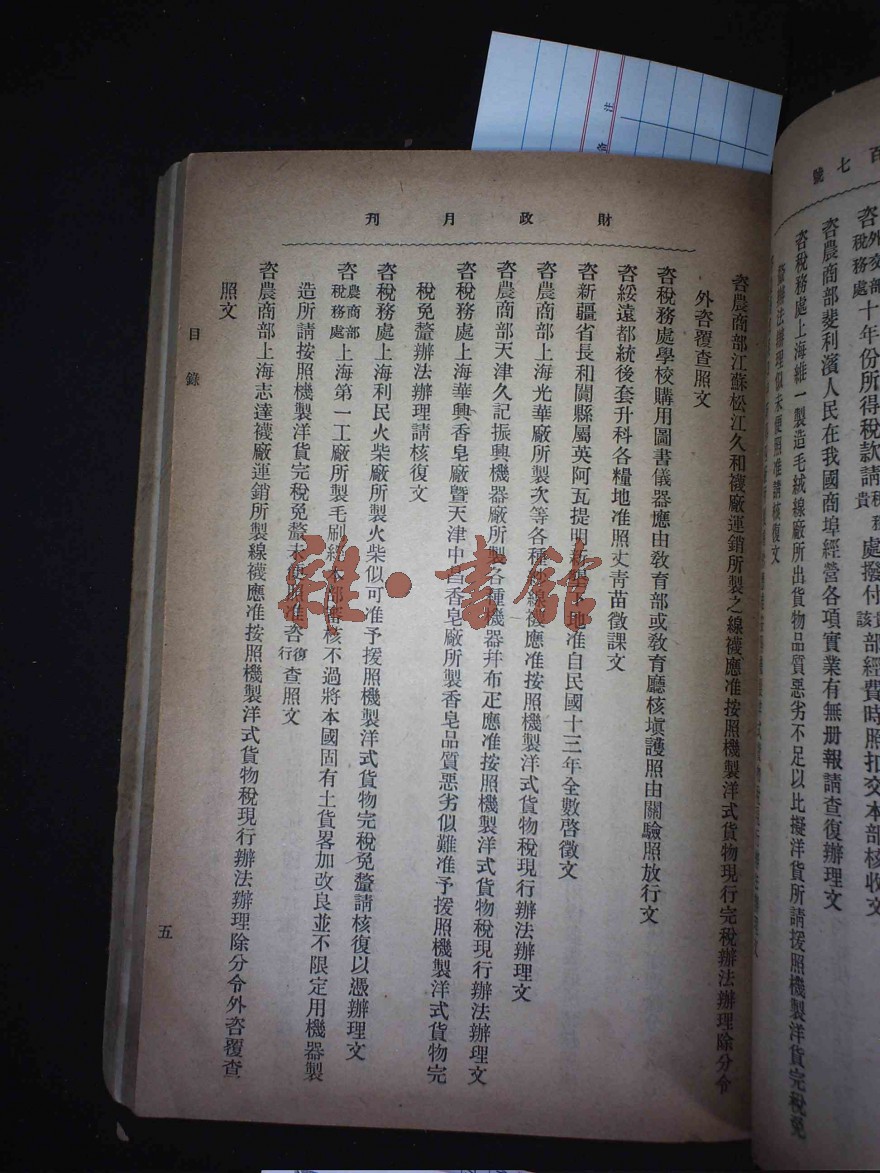 百七號
咨外交部稅務處十年份所得稅款請
處撥付
部經費時照扣交本部核收文
咨農商部斐利濱人民在我國商埠經營各項實業有無册報請查復辦理文
咨稅務處上海維一製造毛絨線廠所出貨物品質惡劣不足以比擬洋貨所請援照機製洋貨完稅免
釐辦法辦理似未便照准請核復文
財政月刊
咨農商部江蘇松江久和襪廠運銷所製之線襪應准按照機製洋式貨物現行完稅辦法辦理除分令
外咨覆查照文
咨稅務處學校購用圖書儀器應由敎育部或敎育廳核塡護照由關驗照放行文
咨綏遠都統後套升科各糧地准照丈靑苗徵課文
咨新疆省長和闐縣屬英阿瓦提明新墾下地准自民國十三年全數啓徵文
咨農商部上海光華廠所製次等各種紗線襪應准按照機製洋式貨物稅現行辦法辦理文
咨農商部天津久記振興機器廠所製各種機器幷布疋應准按照機製洋式貨物稅現行辦法辦理文
咨稅務處上海華興香皂廠曁天津中昌香皂廠所製香皂品質惡劣似難准予援照機製洋式貨物完
稅免釐辦法辦理請核復文
咨稅務處上海利民火柴廠所製火柴似可准予援照機製洋式貨物完稅免釐請核復以憑辦理文
咨農商部稅務處上海第一工廠所製毛刷經本部審核不過將本國固有土貨畧加改良並不限定用機器製
造所請按照機製洋貨完稅免釐未便照准咨復行查照文
咨農商部上海志達襪廠運銷所製線襪應准按照機製洋式貨物稅現行辦法辦理除分令外咨覆查
照文
目錄
五
雜·書館